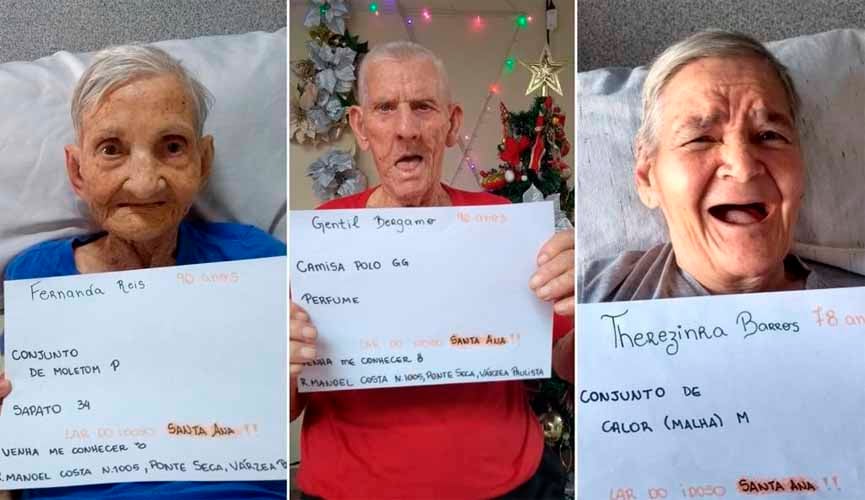 Fernanda Reis 90 anos
CONJUNTO
DE MOLETOM P
SAPATO 34
LAR DO IDOSO SANTA ANA!!
VENHA ME CONHECER
R.MANOEL COSTA N.1005, PONTE SECA, VÁRZEA P
Gentil Bergamo 90 anos
CAMISA POLO GG
PERFUME
LAR DO IDOSO SANTA ANA!!
VENHA ME CONHECER
R.MANOEL COSTA N.1005, PONTE SECA, VÁRZEA PAULISTA
Therezinha Barros 78 an
CONJUNTO DE
CALOR (MALHA) M
LAR DO IDOSO SANTA ANA!!